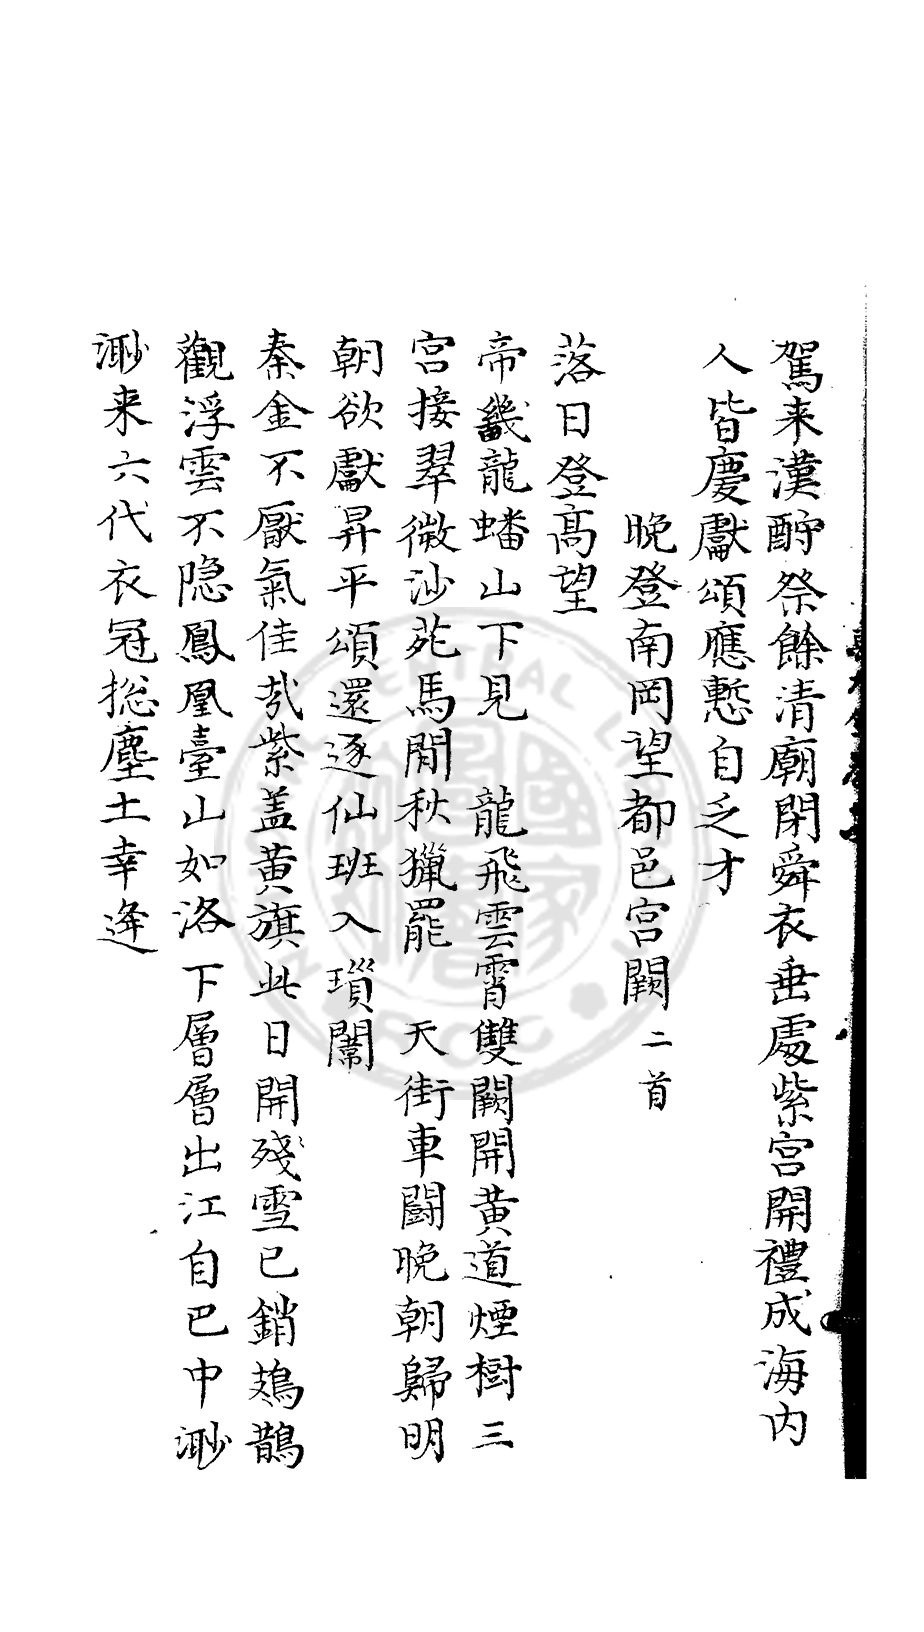 駕来漢酹祭餘清廟閉舜衣垂處紫宮開禮成海内
人皆慶獻頌應慙自乏才
晚登南岡望都邑宮闕二首
落日登髙望
帝畿龍蟠山下見 龍飛雲霄雙闕開黄道煙樹三
宮接翠微沙苑馬閒秋獵罷 天街車闘晚朝歸明
朝欲獻昇平頌還逐仙班入瑣闈
秦金不厭氣佳哉紫盖黄旗此日開殘雪已銷鳷鵲
觀浮雲不隠鳳凰臺山如洛下層層出江自巴中渺
渺来六代衣冠総塵土幸逄